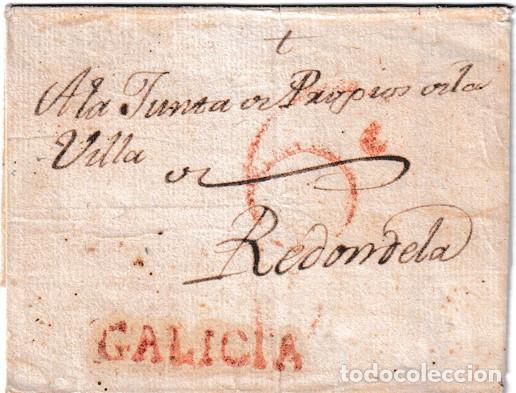 +
A la Junta de Propios de la
Villa
de
6
Redondela
GALICIA
todocoleccion.net